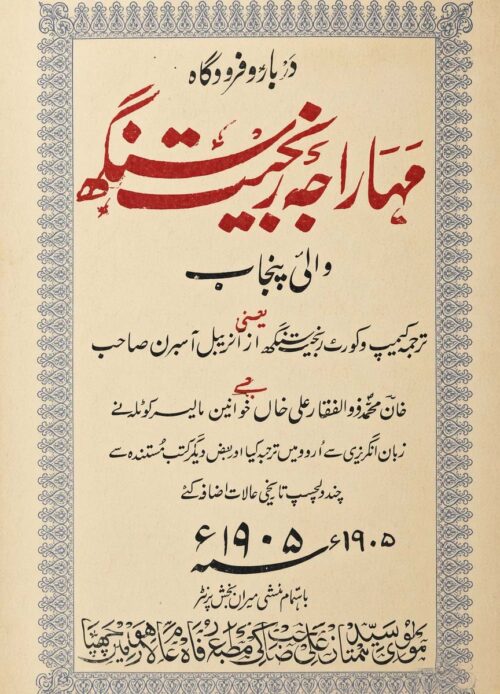 دربار و فرودگاہ
مہاراجہ رنجیت سنگھ
والئ پنجاب
یعنی
ترجمہ کیمپ و کورٹ رنجیت سنگھ از انریبل آسبرن صاحب
جسے
خان محمد ذوالفقار علی خاں خوانین مالیر کوٹلہ نے
زبان انگریزی سے اُردو میں ترجمہ کیا اور بعض دیگر کتب مُستندہ سے
چند دلچسپ تاریخی حالات اضافہ کئے
سنہ ۱۹۰۵ء ۱۹۰۵ء
باہتمام منشی میران بخش پرنٹر
مولوی سید ممتاز علی صاحب کے مطبع رفاہ عام لاہور میں چھپا